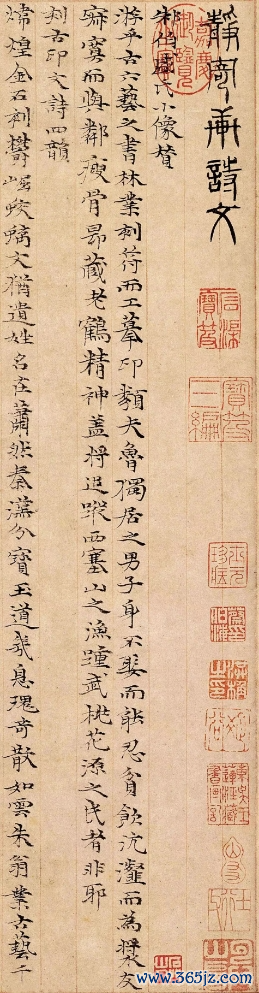 靜寄軒詩文
朱伯盛氏小像贊
游乎古六藝之書林業刻符而工摹印類夫魯獨居之男子身不娶而能忍貧飲沆瀣而為漿友
寂寞而與鄰瘦骨昂藏老鶴精神蓋將追蹤西塞山之漁踵武桃花源之民者非耶
刻古印文詩四韻
煒煌金石刻鬱崛蛟螭文猶遺姓名在蕭然秦漢分寶玉道或息瑰奇散如雲朱翁業古藝千
嘉慶御覽之寶
石渠寶笈
寶笈三編